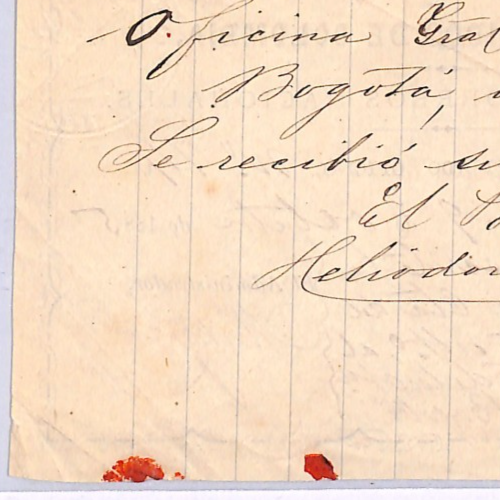 Oficina Gral
Bogotá,
Se recibió su
El
Heliodor